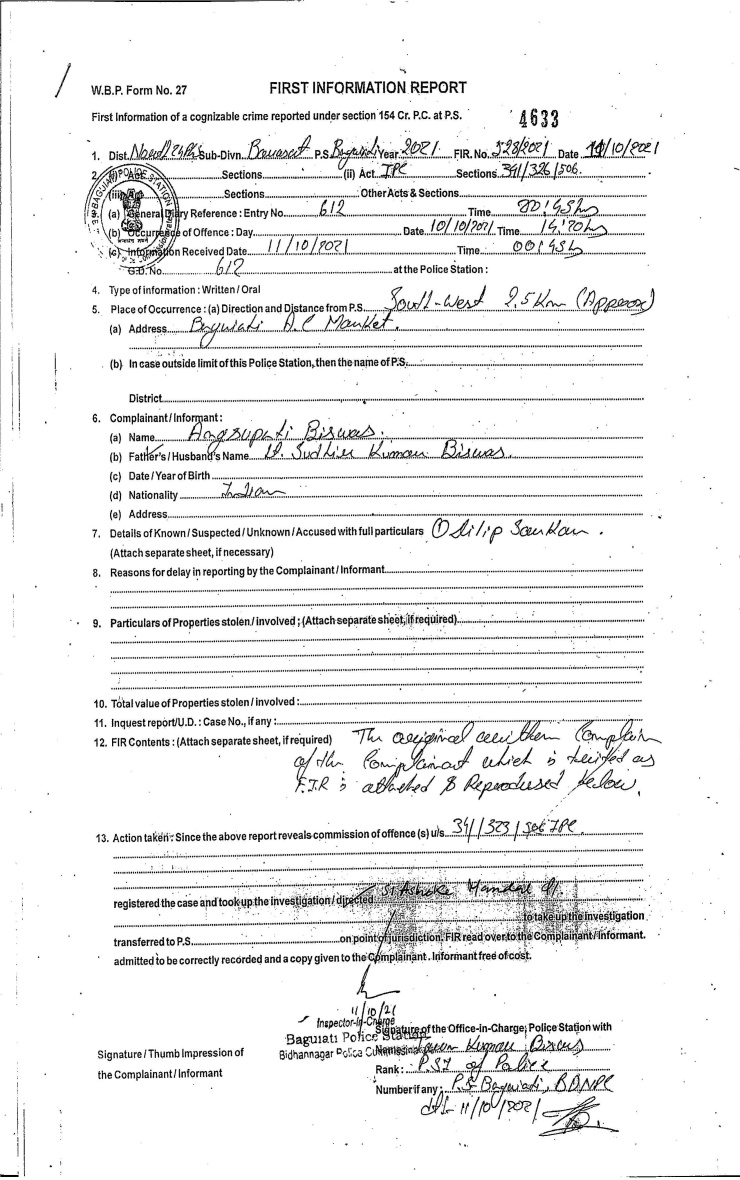 W.B.P. Form No. 27
FIRST INFORMATION REPORT
First Information of a cognizable crime reported under section 154 Cr. P.C. at P.S.
4633
1. Dist. Sub-Divn. Barasat P.S. Baguiati Year 2021. FIR. No. 528/2021 Date 11/10/2021
2. (i) Act Sections (ii) Act. IPC Sections 341/326/506.
(iii) Act Sections Other Acts & Sections
3. (a) General Diary Reference : Entry No. 612 Time 00:45 h
(b) Occurrence of Offence : Day Date 10/10/2021 Time
(c) Information Received Date 11/10/2021 Time 00:45 h
G.D. No. 612 at the Police Station :
4. Type of information : Written / Oral
5. Place of Occurrence : (a) Direction and Distance from P.S. South-West 2.5 Km (Approx)
(a) Address Baguiati A.C Market.
(b) In case outside limit of this Police Station, then the name of P.S.
District
6. Complainant / Informant :
(a) Name Biswas.
(b) Father's / Husband's Name Lt. Sudhir Kumar Biswas.
(c) Date / Year of Birth
(d) Nationality Indian
(e) Address
7. Details of Known / Suspected / Unknown / Accused with full particulars ① Dilip Sarkar.
(Attach separate sheet, if necessary)
8. Reasons for delay in reporting by the Complainant / Informant
9. Particulars of Properties stolen / involved ; (Attach separate sheet, if required)
10. Total value of Properties stolen / involved :
11. Inquest report/U.D. : Case No., if any :
12. FIR Contents : (Attach separate sheet, if required) The original written Complain
of the Complainant which is treated as
F.I.R is attached & Reproduced below.
13. Action taken : Since the above report reveals commission of offence (s) u/s 341/323/506 IPC
registered the case and took up the investigation / directed SI Ashoke Mandal
to take up the investigation
transferred to P.S. on point of jurisdiction. FIR read over to the Complainant / Informant.
admitted to be correctly recorded and a copy given to the Complainant . Informant free of cost.
11/10/21
Inspector-In-Charge
Signature of the Office-in-Charge, Police Station with
Baguiati Police Station
Bidhannagar Police Name Kumar Biswas
Signature / Thumb Impression of
the Complainant / Informant
Rank : PSI of Police
Number if any : P.S. Baguiati, BDNPC
dt- 11/10/2021